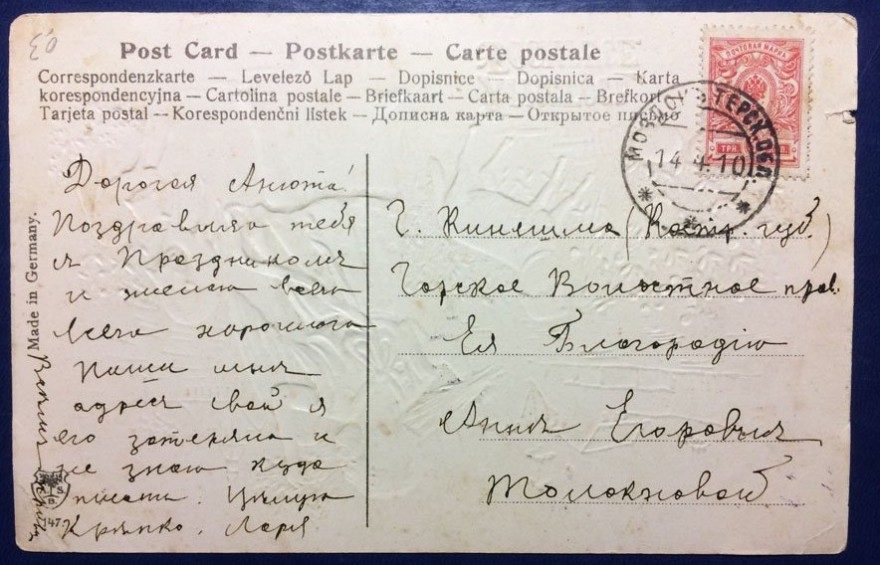 Post Card — Postkarte — Carte postale
Correspondenzkarte — Levelező Lap — Dopisnice — Dopisnica — Karta
korespondencyjna — Cartolina postale — Briefkaart — Carta postala — Brefkort —
Tarjeta postal — Korespondenčni listek — Дописна карта — Открытое письмо
ПОЧТОВАЯ МАРКА
ТРИ
МОЗДОКЪ ТЕРСК. ОБЛ.
14 4 10
Дорогая Анюта!
Поздравляю тебя
съ Праздникомъ
и желаю всего
всего хорошаго
Пиши мнѣ
адресъ свой я
его затеряла и
не знаю куда
писать. Цѣлую
Крѣпко. Ларя
Г. Кинешма (Кост. губ.)
Горское Волостное прав.
Ея Благородію
Аннѣ Егоровнѣ
Толоконовой
Made in Germany.
147